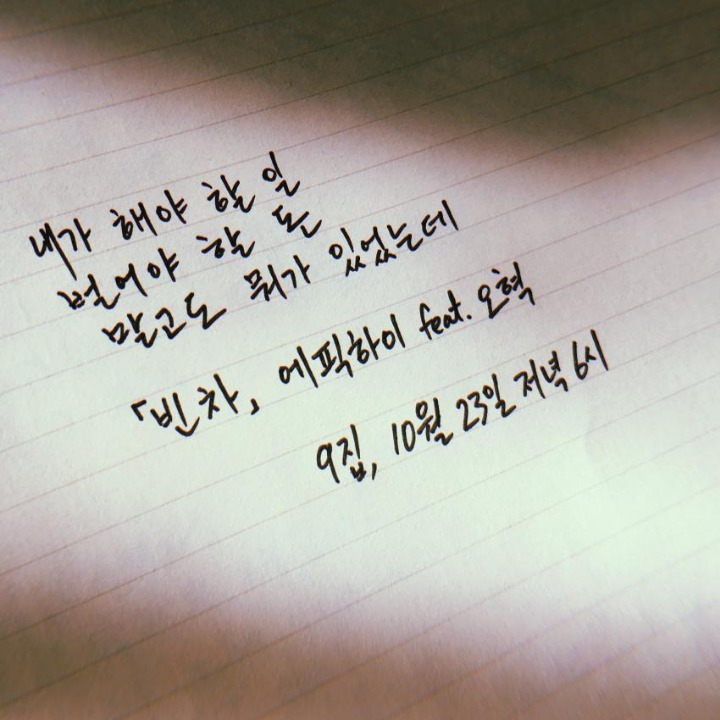 내가 해야 할 일
벌어야 할 돈
말고도 뭐가 있었는데
「빈차」 에픽하이 feat. 오혁
9집, 10월 23일 저녁 6시